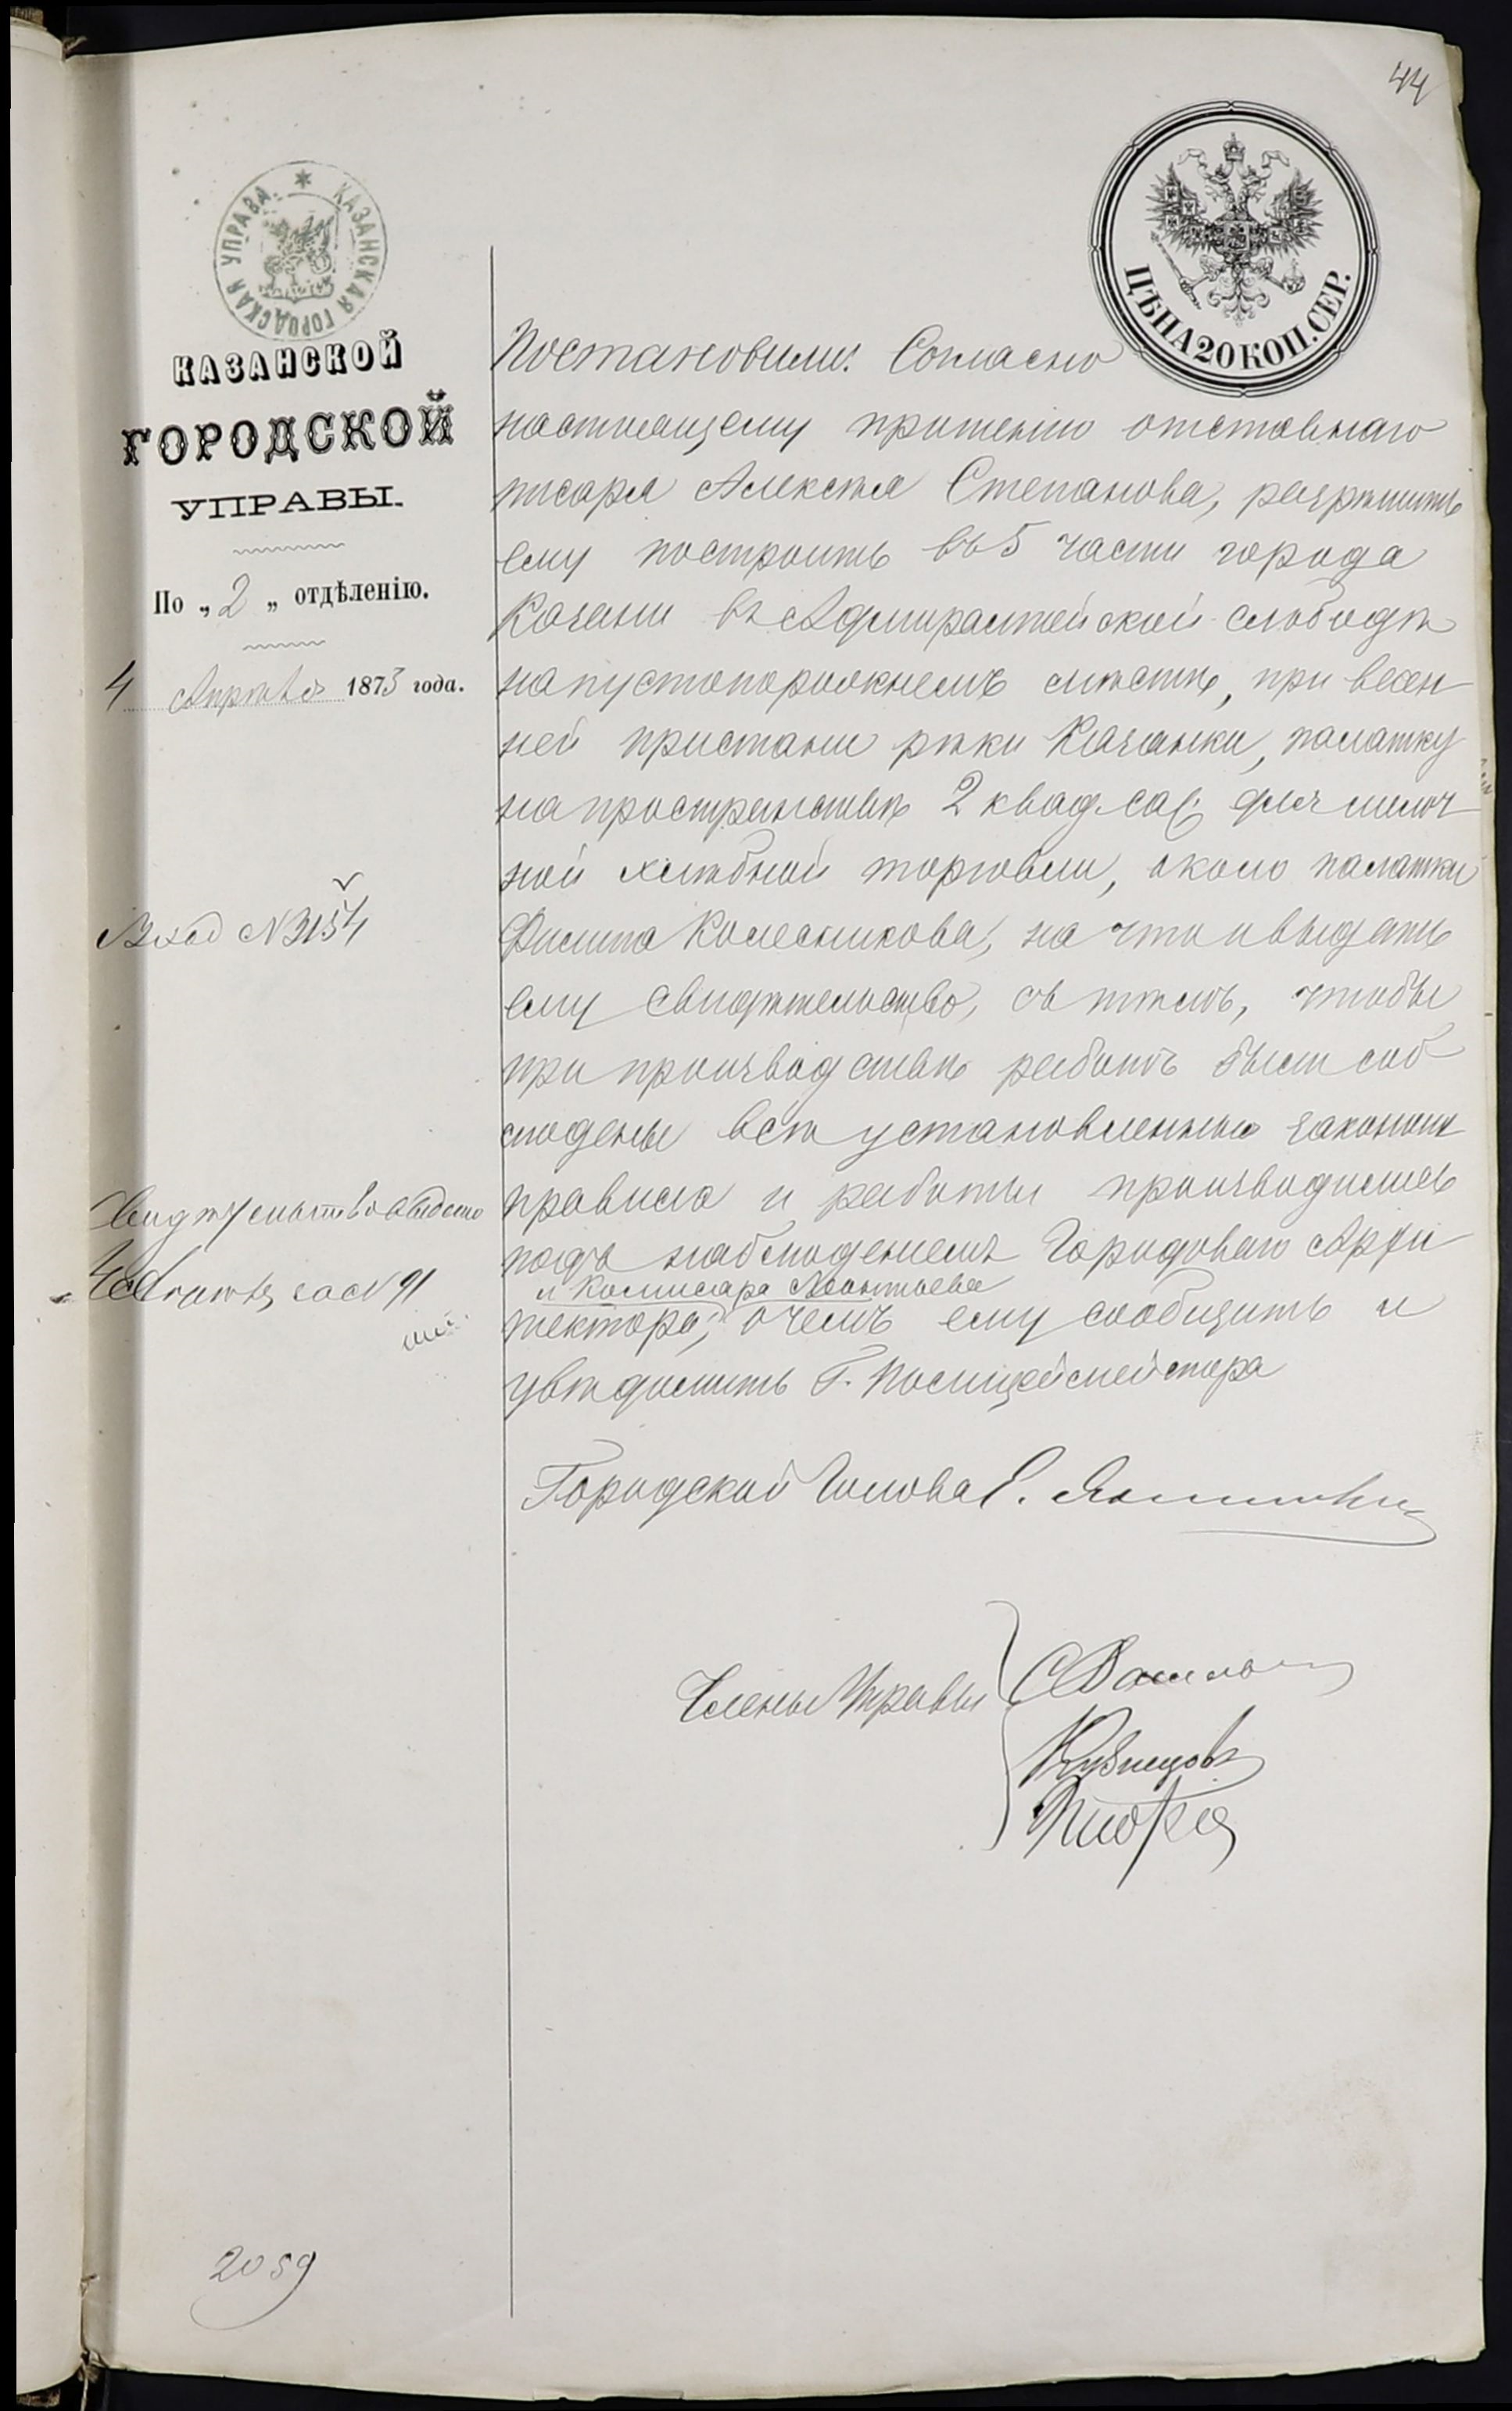 44
КАЗАНСКАЯ ГОРОДСКАЯ УПРАВА
ЦѢНА 20 КОП. СЕР.
КАЗАНСКОЙ
ГОРОДСКОЙ
УПРАВЫ.
По „2„ отдѣленію.
4 Апрѣля 1873 года.
Вход № 3154
Свидѣтельство выдано
за № 91
2059
Постановили: Согласно
настоящему прошенію отставнаго
писаря Алексѣя Степанова, разрѣшить
ему построить въ 5 части города
Казани въ Адмиралтейской слободѣ
на пустопорожнемъ мѣстѣ, при весен
ней пристани рѣки Казанки, палатку
на пространствѣ 2 квад. саж. для мелоч
ной хлѣбной торговли, около палатки
Филипа Колесникова, на что и выдать
ему свидѣтельство, съ тѣмъ, чтобы
при производствѣ работъ были соб
людены всѣ установленныя закономъ
правила и работы производились
подъ наблюденіемъ Городоваго Архи
и Комисара Леонтьева
тектора, о чемъ ему сообщить и
увѣдомить Г. Полицеймейстера
Городской Голова Е.
Члены Управы
Кузнецовъ